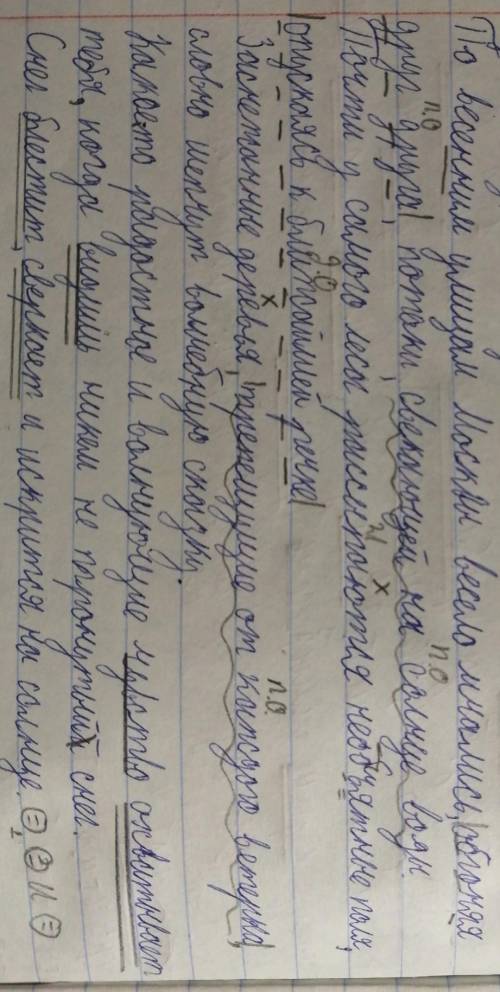 По весенним улицам Москвы весело мчались, обгоняя
друг друга, потоки сверкающей на солнце воды.
Почти у самого леса расстилаются необъятные поля,
опускаясь к ближайшей речке
Заснеженные деревья, трепещущие от каждого ветерка,
словно шепчут волшебную сказку.
Какое-то радостное и волнующее чувство охватывает
тебя, когда видишь никем не тронутый снег.
Снег блестит, сверкает и искрится на солнце.
п.о
п.о
д.о
х
х
п.о.